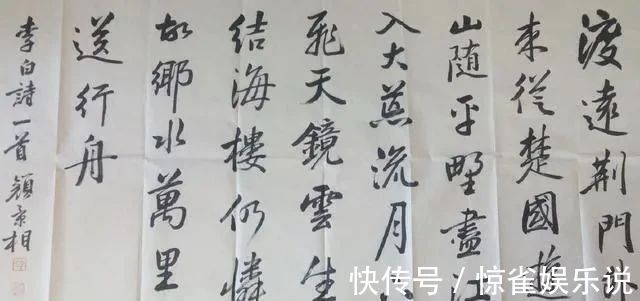 渡遠荆門
来從楚國遊
山隨平野盡江
入大荒流月
飛天鏡雲生
結海樓仍憐
故鄉水萬里
送行舟
李白詩一首
快传号/惊雀娱乐说